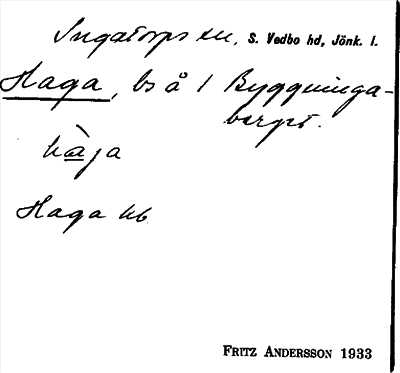 Ingatorps sn, S. Vedbo hd, Jönk. l.
Haga, bs å 1 Byggninga-
berget.
hàja
Haga hb
FRITZ ANDERSSON 1933